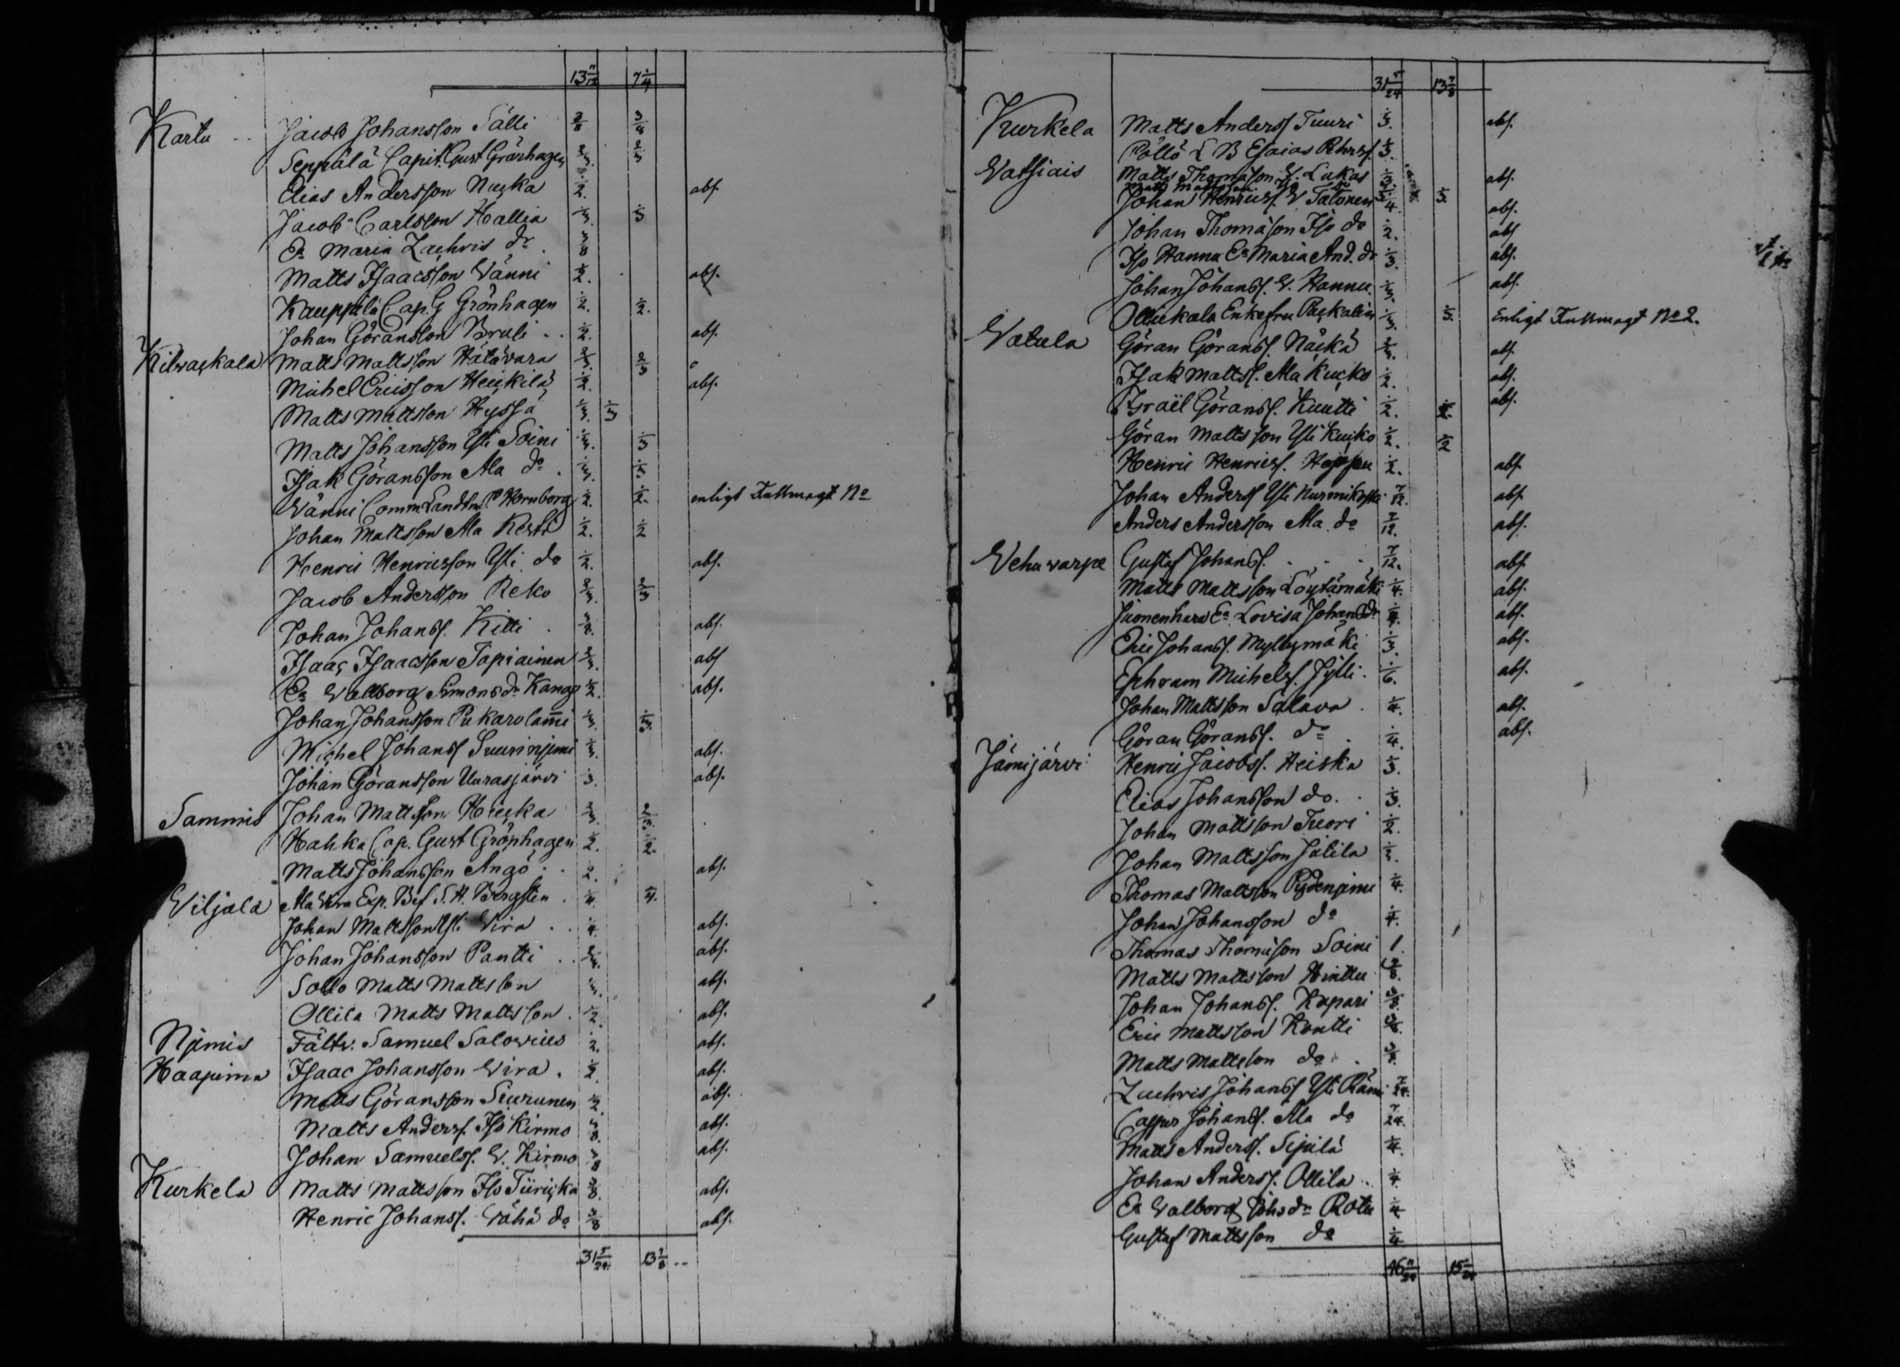 13 11/12 7 1/4
Kartu Jacob Johansson Sälli 3/8 3/4
Seppälä Capit. Gust Grönhagen 2/3 2/3
Elias Andersson Nucka 1/2 abs.
Jacob Carlsson Hallia 1/3 1/3
Ea Maria Zachris dr 3/8
Matts Isaacsson Wänni 1/2 abs.
Kauppila Cap. G Grönhagen 1/2 1/2
Johan Göransson Pruli 1/2 abs.
Kilwackala Matts Mattsson Hätävara 2/3 2/3
Michel Ericsson Heickilä 1/2 abs.
Matts Mattsson Hyssä 1/3 1/3
Matts Johansson Yli Soini 1/3 1/3
Isak Göransson Ala do 1/3 1/3
Wänni Comm. Landtm. Hornborg 1/2 1/2 enligt Fullmagt No
Johan Mattsson Ala Kertt 1/2 1/2
Henric Henricsson Yli do 1/2 abs.
Jacob Andersson Reko 2/3 2/3
Johan Johanss. Kitti 3/8 abs.
Isaac Isaacsson Tapiainen 2/3 abs
Ea Wallborg Simons dr Kango 1/2 abs.
Johan Johansson Pukarolammi 1/3 1/3
Michel Johanss Suurinjemi 1/3 abs.
Johan Göransson Uurasjärvi 1/3 abs.
Sammis Johan Mattsson Heicka 2/3 2/3
Hahka Cap. Gust Grönhagen 1/2 1/2
Matts Johansson Ängö 1/2 abs.
Viljala Ala Wira Exp. Bef S. H. Bergsten 1/4 1/4
Johan Mattsson Yli Wira 1/4 abs.
Johan Johansson Pantti abs.
Sallo Matts Mattsson abs.
Ollila Matts Mattsson 1/2 abs.
Njemis Fältv. Samuel Salovius 1/2 abs.
Haapima Isaac Johansson Wira 1/2 abs.
Matts Göransson Seurunen 1/2 abs.
Matts Anderss. Iso Kirmo 3/8 abs.
Johan Samuelss. W. Kirmo 3/8 abs.
Kurkela Matts Mattsson Iso Türicka 3/8 abs.
Henric Johanss. Wähä do 3/8 abs.
31 5/24 13 7/8
31 5/24 13 7/8
Kurkela Matts Anderss Tuuri 1/3 abs.
Pöllö L B Esaias Rehrs. 1/3
Vatsiais Matts Thomasson W. Lukas abs.
Johan Henricss. W Talonen abs.
Johan Thomasson Iso do 1/2 abs
Iso Hannu Ea Maria And. dr 1/3 abs.
Johan Johanss. W. Hannu 1/3 abs.
Ollukala Enkefru Packalén 1/3 1/3 Enligt Fullmagt No 2.
Vatula Göran Göranss. Näckä abs.
Isak Mattss. Ala Kucko 1/2 abs.
Israël Göranss. Kuutti 1/2 abs.
Göran Mattsson Yli Kucko 1/2 1/2
Henric Henricss. Heppu 1/2 abs.
Johan Anderss Yli Nurmikosk 7/12 abs.
Anders Andersson Ala do 7/12 abs.
Vehuvarpe Gustaf Johanss. 7/12 abs.
Matts Mattsson Löytärmäki 1/4 abs.
Ea. Lovisa Johans dr 1/4 abs.
Eric Johanss. Myllymäki 1/3 abs.
Ephraim Michelss. Jylli 1/6 abs.
Johan Mattsson Salava 1/4 abs.
Göran Göranss. do 1/4 abs.
Jämijärvi Henric Jacobss. Heiska 1/3
Elias Johansson do 1/3
Johan Mattsson Tuori 1/2
Johan Mattsson Jalila 1/3
Thomas Mattsson Pydenjemi 1/4
Johan Johansson do 1/4
Thomas Thomasson Soini 1
Matts Mattsson Hinttu
Johan Johanss. Kupari
Eric Mattsson Kontti
Matts Mattsson do
Zachris Johanss Yli Rämi 7/24
Casper Johanss. Ala do 7/24
Matts Anderss. Sipilä 1/4
Johan Anderss. Ollila 1/4
Ea Walborg Johs dr Rotu 1/4
Gustaf Mattsson do 1/4
46 11/24